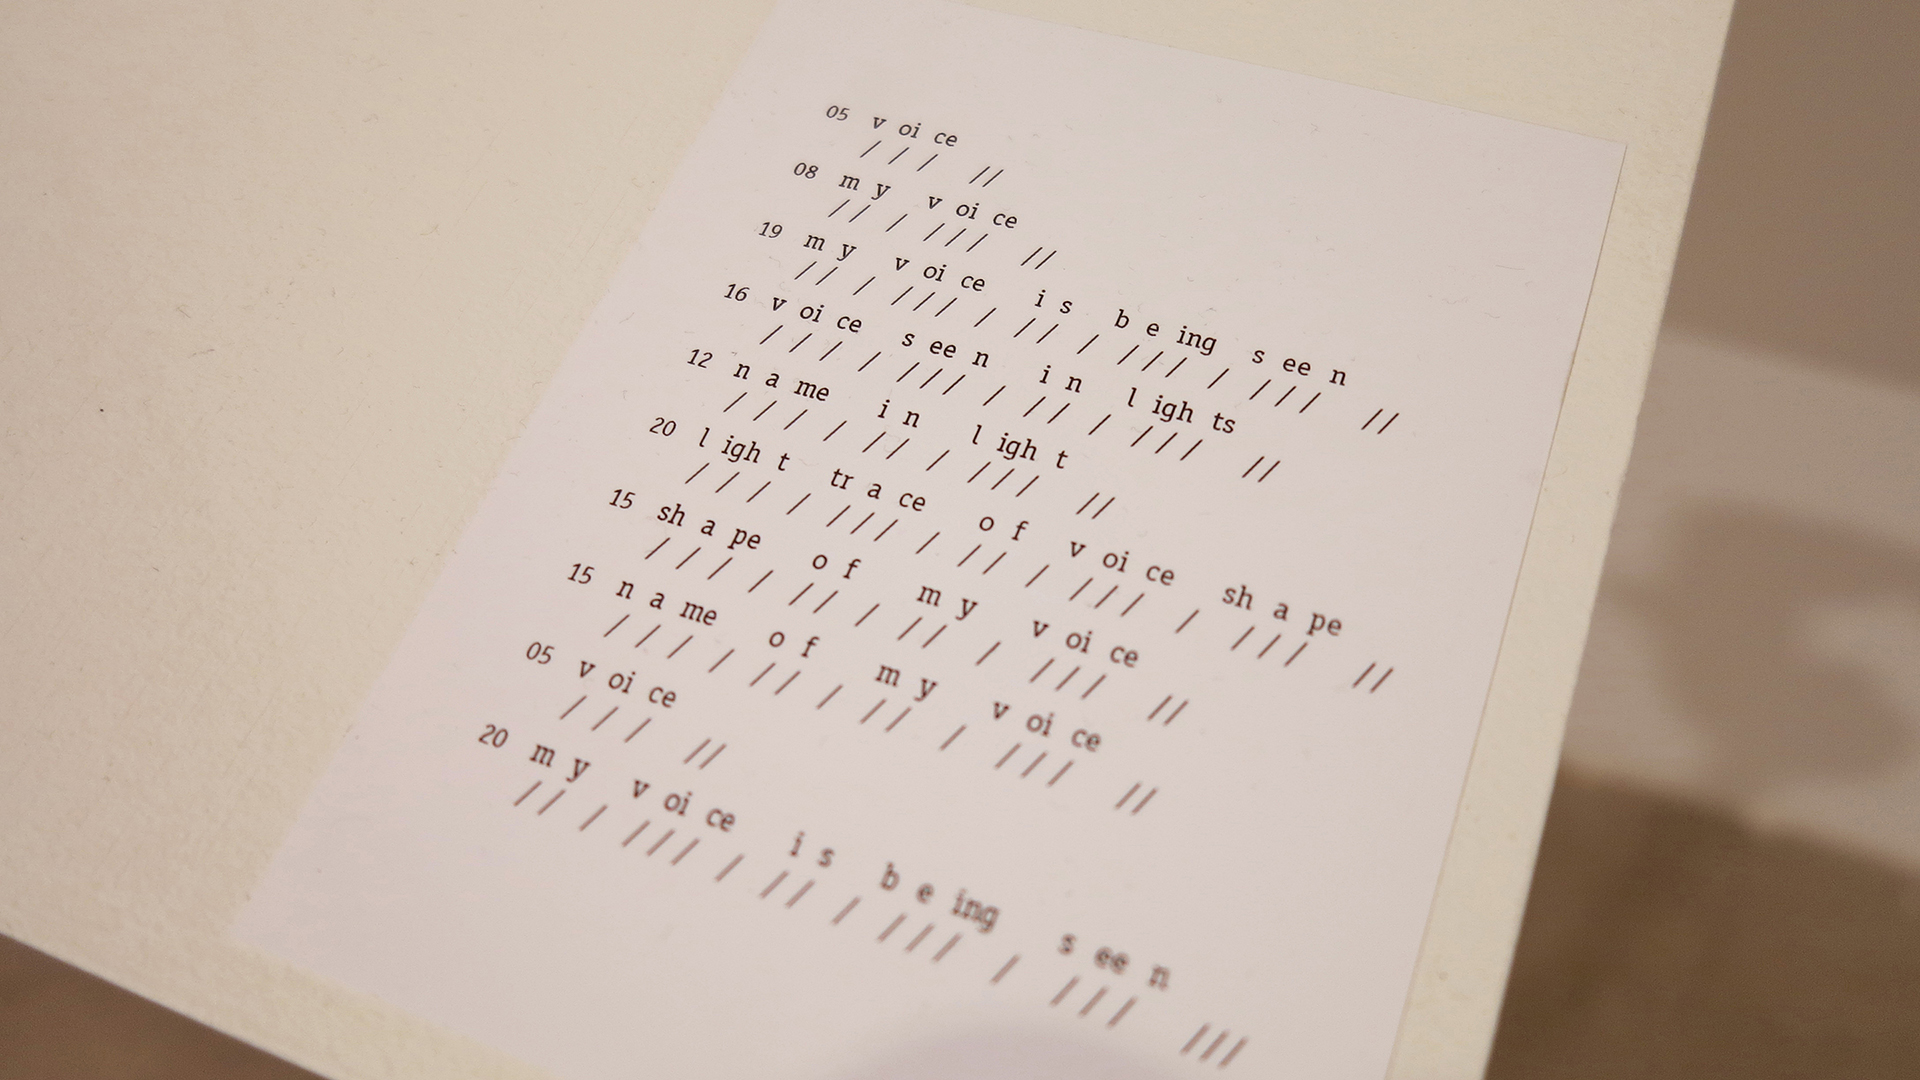 05 v oi ce
/// //
08 m y v oi ce
// / /// //
19 m y v oi ce i s b e ing s ee n
// / /// / // / /// / /// //
16 v oi ce s ee n i n l igh ts
/// / /// / // / /// //
12 n a me i n l igh t
/// / // / /// //
20 l igh t tr a ce o f v oi ce sh a pe
/// / /// / // / /// / /// //
15 sh a pe o f m y v oi ce
/// / // / // / /// //
15 n a me o f m y v oi ce
/// / // / // / /// //
05 v oi ce
/// //
20 m y v oi ce i s b e ing s ee n
// / /// / // / /// / /// ///